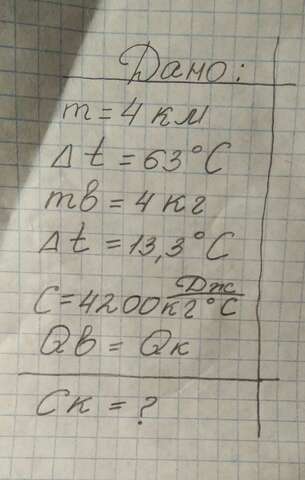 Дано:
m = 4 км
Δt = 63°C
mв = 4 кг
Δt = 13,3°C
C = 4200 Дж/кг°C
Qв = Qк
Cк = ?